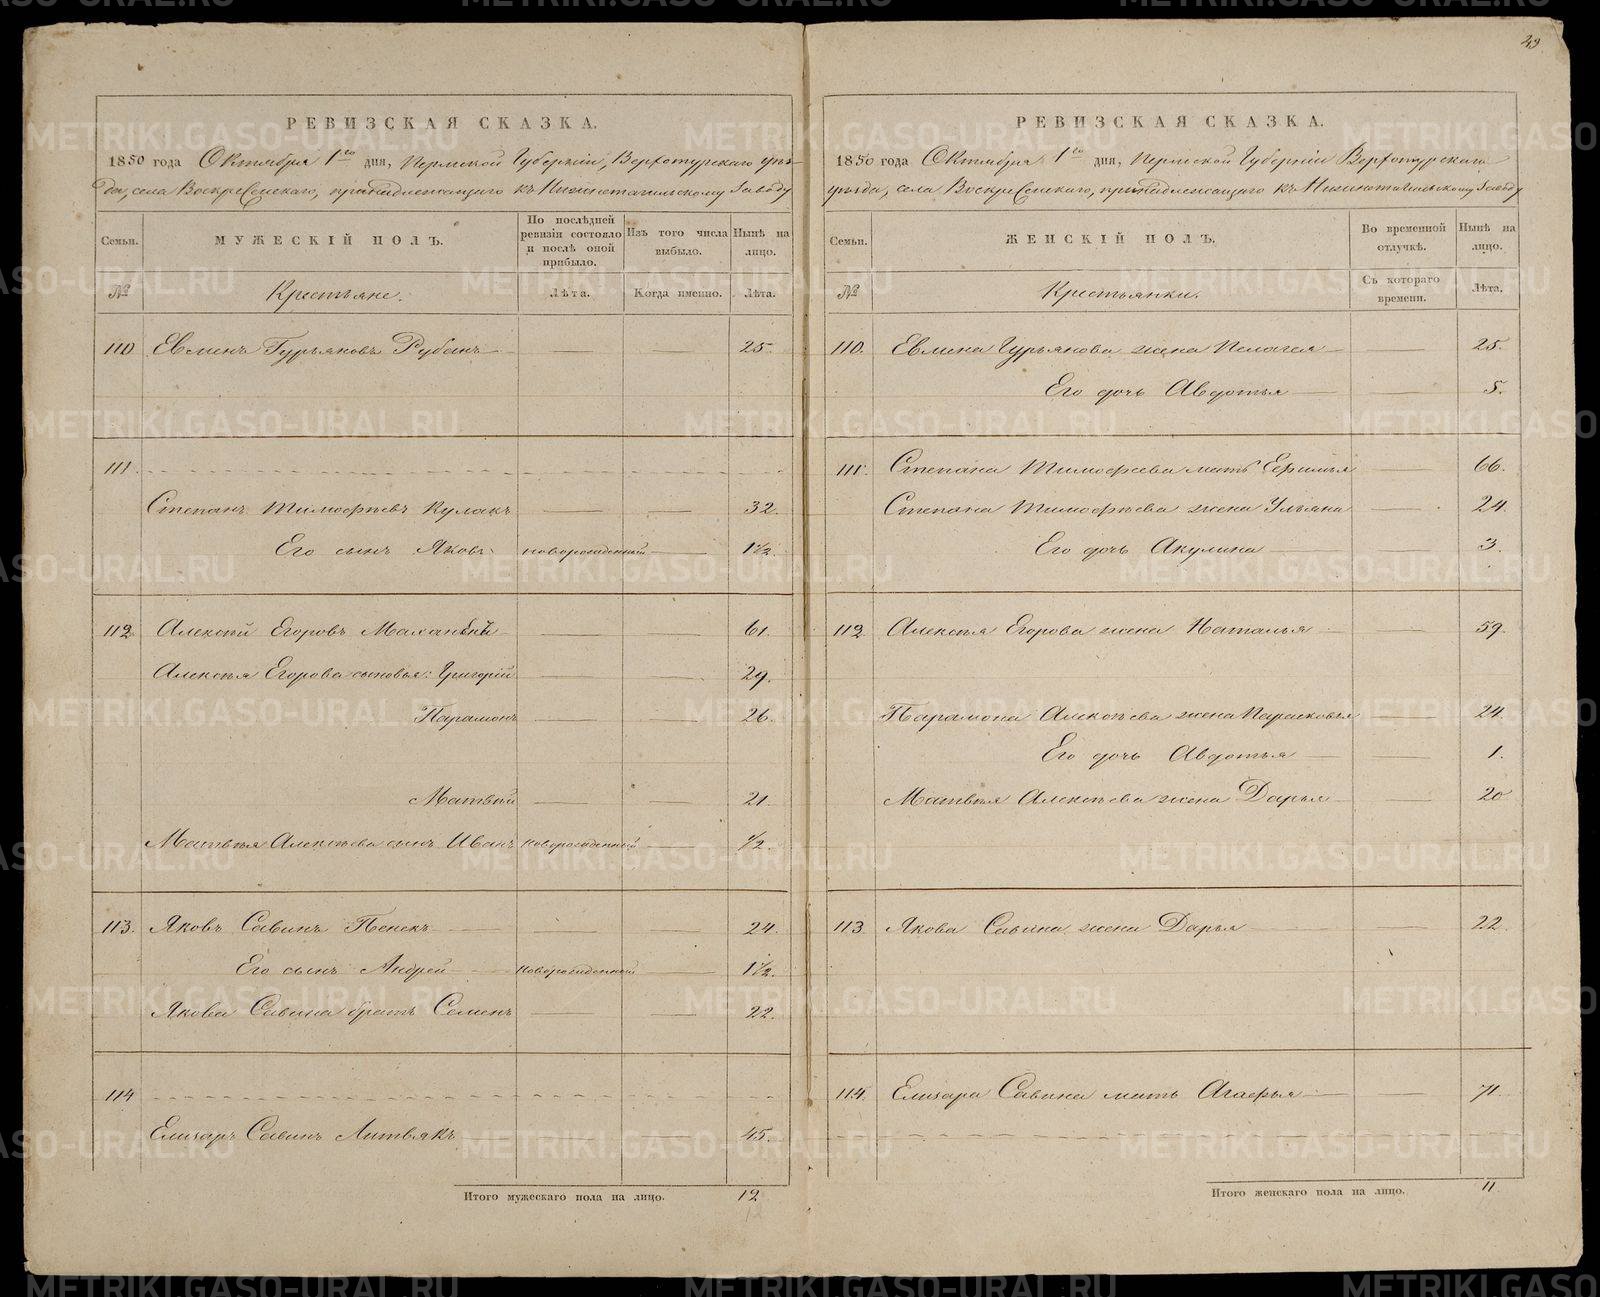 49
РЕВИЗСКАЯ СКАЗКА.
1850 года Октября 1го дня, Пермской Губернiи, Верхотурскаго уѣз-
да, села Воскресенскаго, принадлежащаго къ Нижнотагильскому заводу
Семьи. МУЖЕСКIЙ ПОЛЪ. По послѣдней ревизiи состояло и послѣ оной прибыло. Изъ того числа выбыло. Нынѣ на лицо.
№ Крестьяне. Лѣта. Когда именно. Лѣта.
110 Евменъ Гурьяновъ Рубанъ 25.
111.
Степанъ Тимофѣевъ Кулакъ 32.
Его сынъ Яковъ новорожденный 1½.
112 Алексѣй Егоровъ 61.
Алексѣя Егорова сыновья: Григорiй 29.
Парамонъ 26.
Матвѣй 21.
Матвѣя Алексѣева сынъ Иванъ новорожденный ½.
113. Яковъ Савинъ Пенекъ 24.
Его сынъ Андрей новорожденный 1½.
Якова Савина братъ Семенъ 22.
114
Елизаръ Савинъ Литвякъ 45.
Итого мужескаго пола на лицо. 12
РЕВИЗСКАЯ СКАЗКА.
1850 года Октября 1го дня, Пермской Губернiи Верхотурскаго
уѣзда, села Воскресенскаго, принадлежащаго къ Нижнотагильскому заводу
Семьи. ЖЕНСКIЙ ПОЛЪ. Во временной отлучкѣ. Нынѣ на лицо.
№ Крестьянки. Съ котораго времени. Лѣта.
110. Евмена Гурьянова жена Пелагея 25.
Его дочь Авдотья 5.
111. Степана Тимофеева мать Ефимья 66.
Степана Тимофѣева жена Ульяна 24.
Его дочь Акулина 3.
112 Алексѣя Егорова жена Наталья 59.
Парамона Алексѣева жена Парасковья 24.
Его дочь Авдотья 1.
Матвѣя Алексѣева жена Дарья 20
113 Якова Савина жена Дарья 22.
114. Елизара Савина мать Агафья 71.
Итого женскаго пола на лицо. 11
METRIKI.GASO-URAL.RU